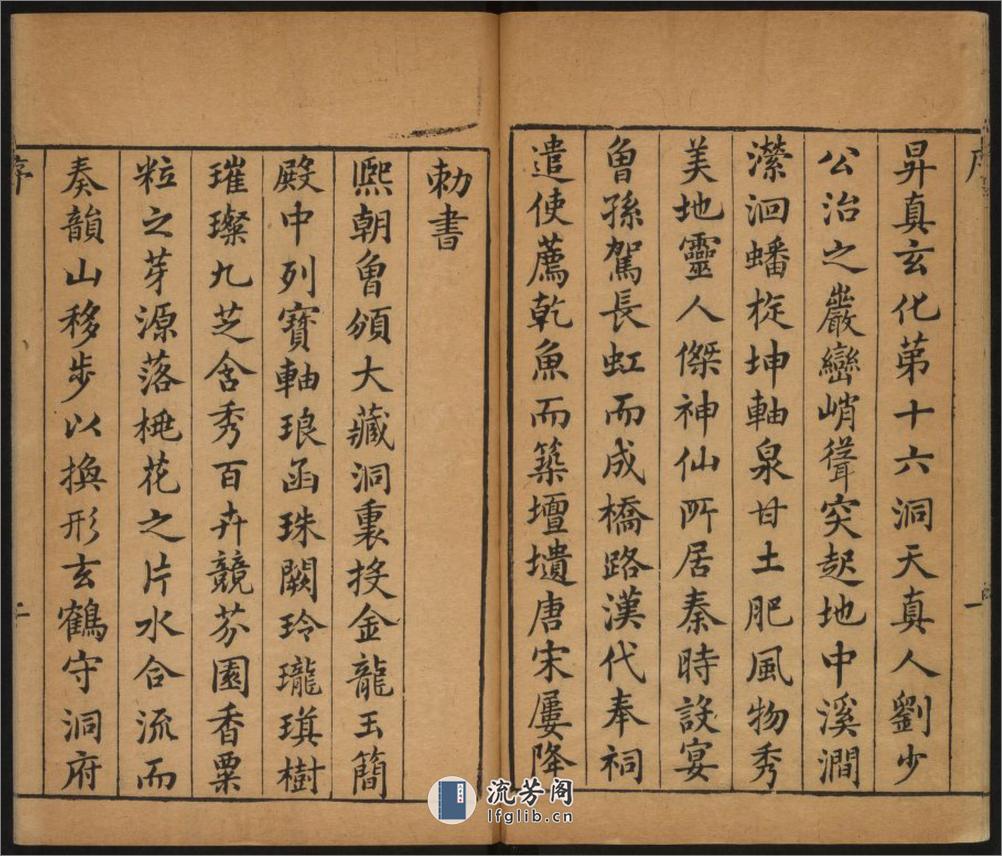 昇真玄化第十六洞天真人劉少
公治之巖巒峭聳突起地中溪澗
瀠洄蟠旋坤軸泉甘土肥風物秀
美地靈人傑神仙所居秦時設宴
曾孫駕長虹而成橋路漢代奉祠
遣使薦乾魚而築壇墠唐宋屢降
勅書
熈朝曾頒大藏洞裏投金龍玉簡
殿中列寶軸琅函珠闕玲瓏琪樹
璀璨九芝含秀百卉競芬園香粟
粒之芽源落桃花之片水合流而
奏韻山移步以換形玄鶴守洞府
序
流芳阁
lfglib.cn